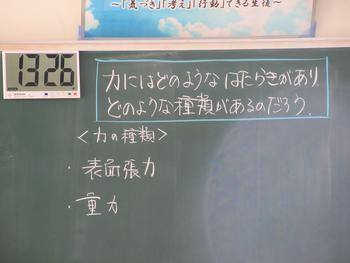 ～「気づき」「考え」「行動」できる生徒～
1326
力にはどのようなはたらきがあり、
どのような種類があるのだろう。
＜力の種類＞
・表面張力
・重力